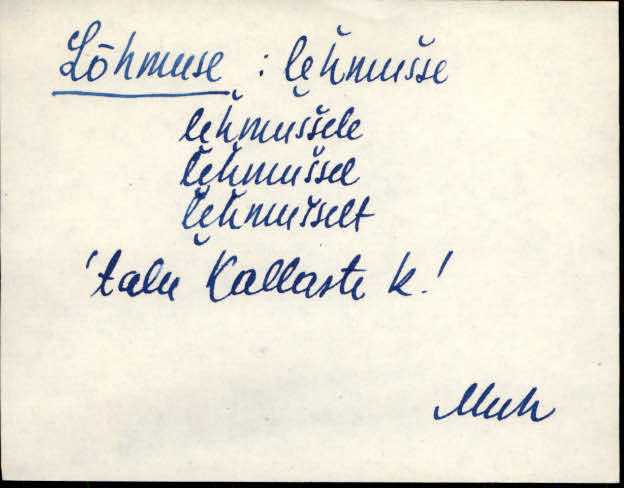 Lõhmuse : lẹh̆mušše
lẹh̆muššele
lẹh̆muššel
lẹh̆muššelt
'talu Kallaste k!
Muh